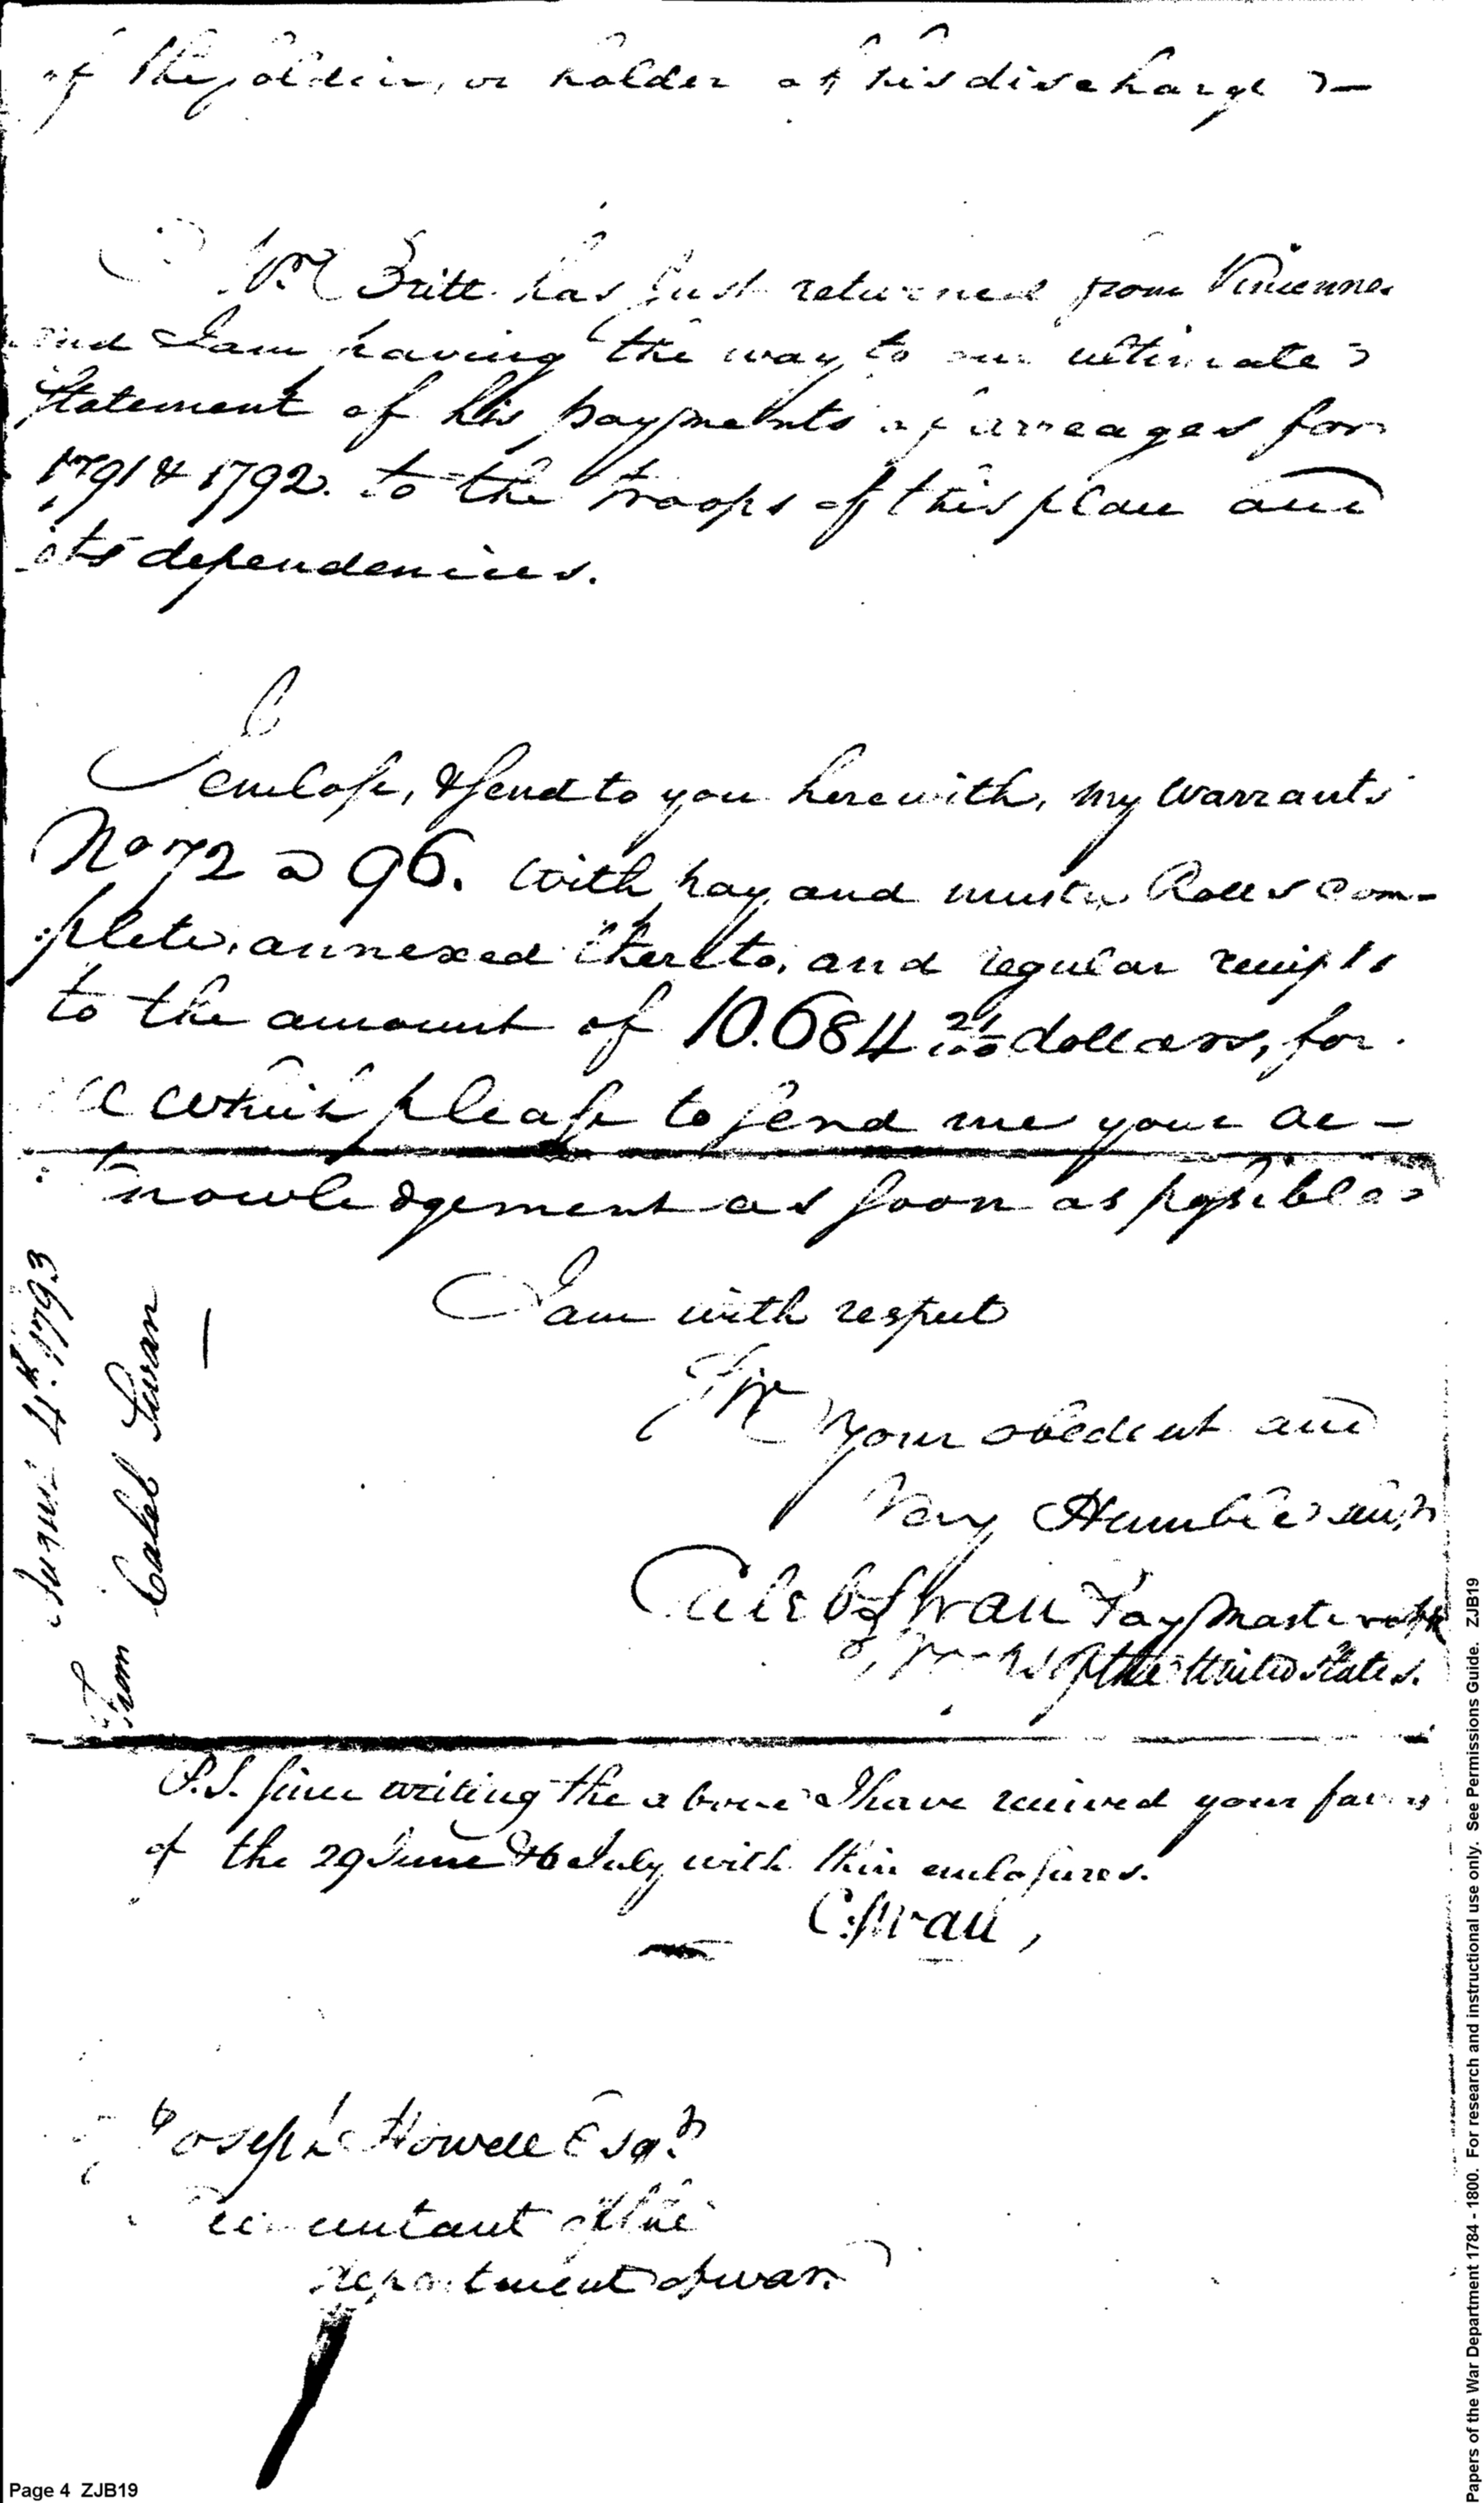 of the soldier, or holder of his discharge
Mr Britt has just returned from Vincennes
and I am having the way to an ultimate
statement of his payments of arreages for
1791 & 1792. to the troops of this place and
its dependencies.
I enclose, & send to you herewith, my Warrants
No 72 a 96. with pay and muster Rolls com-
plete, annexed thereto, and regular receipts
to the amount of 10.684 21/100 dollars, for
all which please to send me your ac-
knowledgement as soon as possible
I am with respect
Sir
Your obedient and
Very Humble
Caleb Swan Paymaster
of the United States.
P.S. since writing the above I have received your favors
of the 29 June & 6 July with their enclosures.
C: Swan,
Joseph Howell Esqr
Accountant of the
department of war.
4th. 1793
From Caleb Swan
Page 4 ZJB19
Papers of the War Department 1784 - 1800. For research and instructional use only. See Permissions Guide. ZJB19